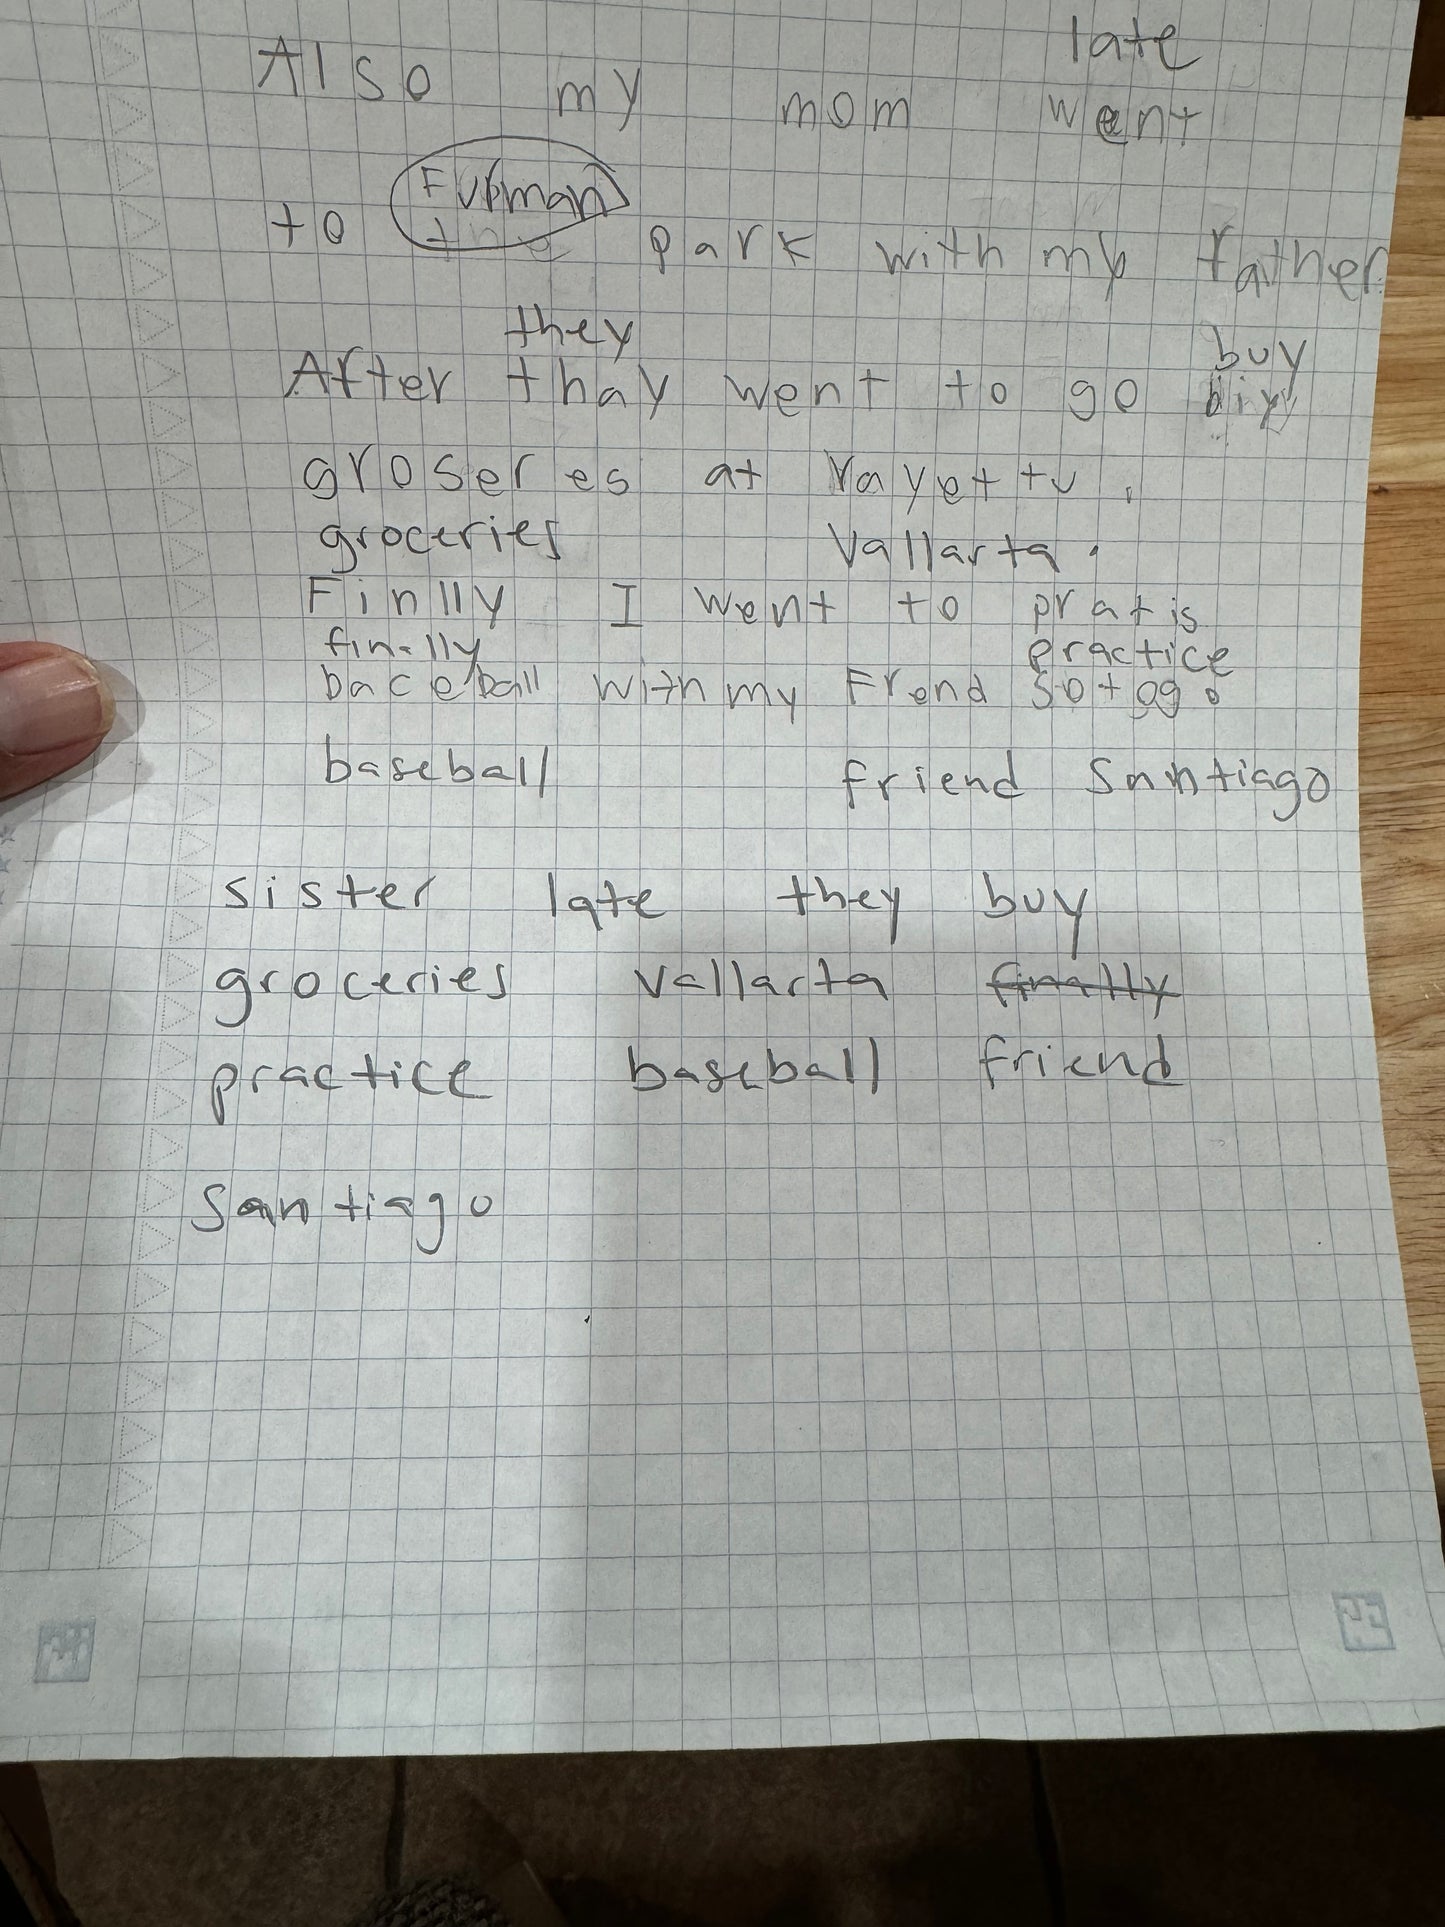 late
Also my mom went
Furman
to the park with my father.
they buy
After thay went to go biy
groseres at Vayettu.
groceries Vallarta.
Finlly I went to pratis
finally practice
baceball with my Frend Sotgg.
baseball friend Santiago
sister late they buy
groceries vallarta finally
practice baseball friend
Santiago